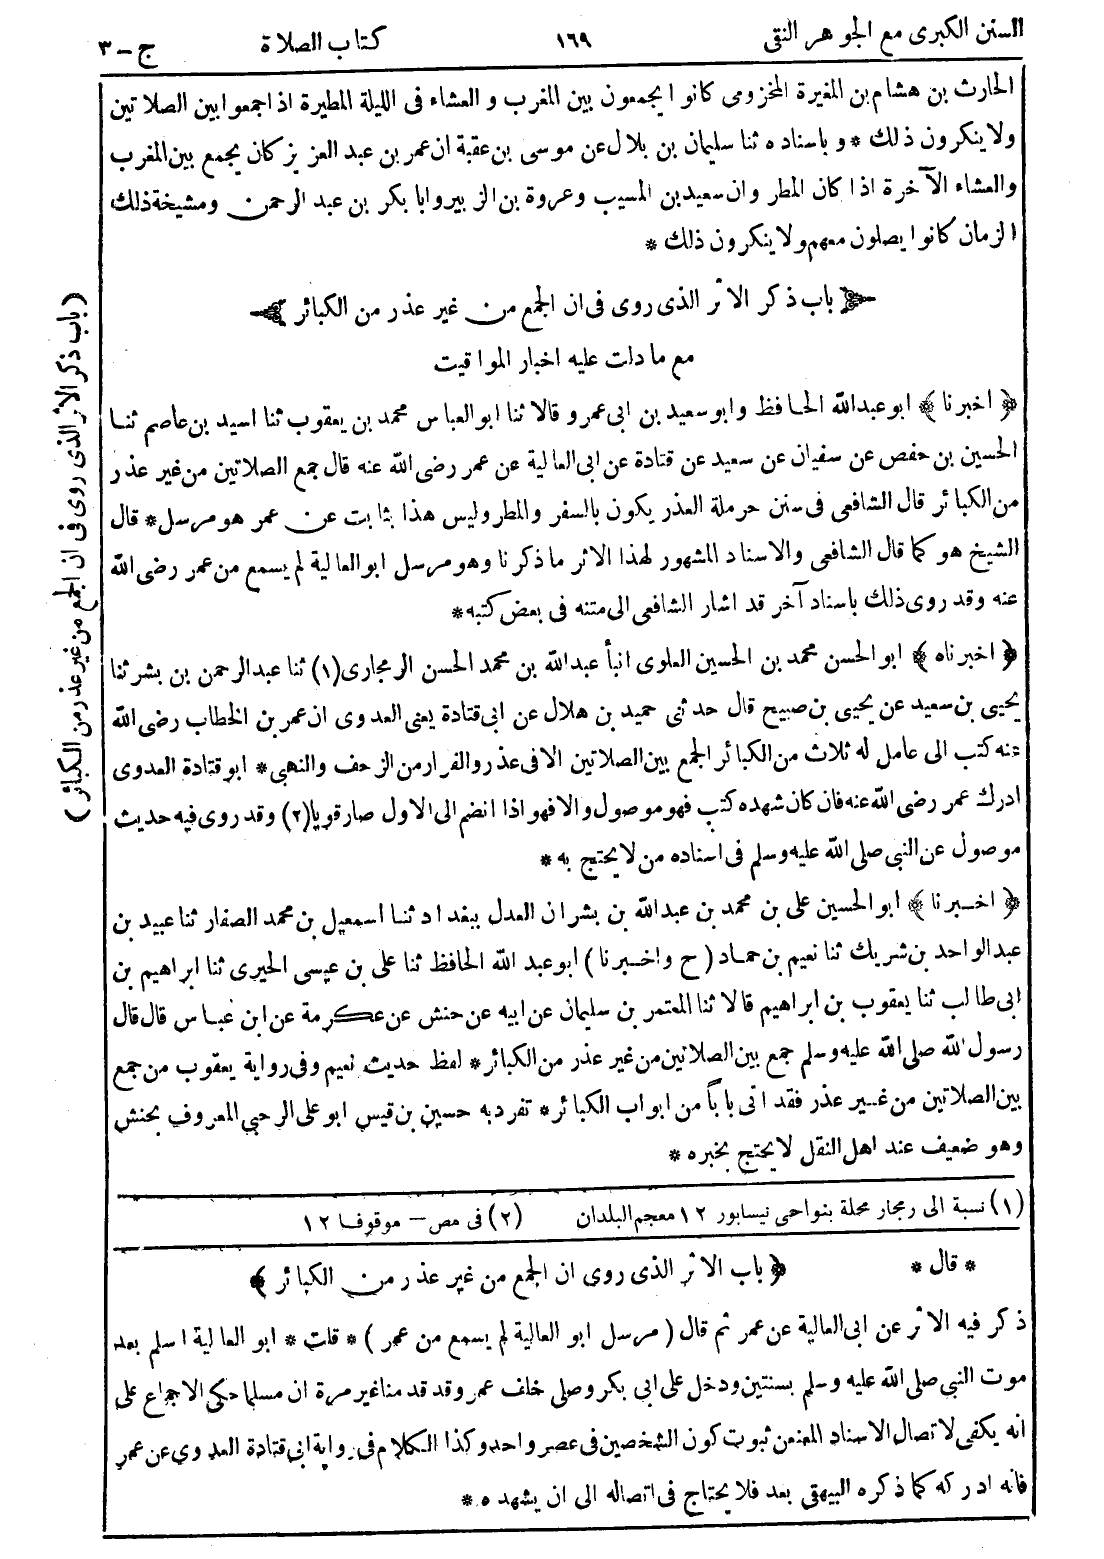 السنن الكبرى مع الجوهر النقى ١٦٩ كتاب الصلاة ج-٣
الحارث بن هشام بن المغيرة المخزومى كانوا يجمعون بين المغرب والعشاء فى الليلة المطيرة اذا جمعوا بين الصلاتين
ولا ينكرون ذلك * وباسناده ثنا سليمان بن بلال عن موسى بن عقبة ان عمر بن عبد العزيز كان يجمع بين المغرب
والعشاء الآخرة اذا كان المطر وان سعيد بن المسيب وعروة بن الزبير وابا بكر بن عبد الرحمن ومشيخة ذلك
الزمان كانوا يصلون معهم ولا ينكرون ذلك *
﴿ باب ذكر الاثر الذى روى فى ان الجمع من غير عذر من الكبائر ﴾
مع ما دلت عليه اخبار المواقيت
﴿ اخبرنا ﴾ ابو عبدالله الحافظ وابو سعيد بن ابى عمرو قالا ثنا ابو العباس محمد بن يعقوب ثنا اسيد بن عاصم ثنا
الحسين بن حفص عن سفيان عن سعيد عن قتادة عن ابى العالية عن عمر رضى الله عنه قال جمع الصلاتين من غير عذر
من الكبائر قال الشافعى فى سنن حرملة العذر يكون بالسفر والمطر وليس هذا بثابت عن عمر هو مرسل * قال
الشيخ هو كما قال الشافعى والاسناد المشهور لهذا الاثر ما ذكرنا وهو مرسل ابو العالية لم يسمع من عمر رضى الله
عنه وقد روى ذلك باسناد آخر قد اشار الشافعى الى متنه فى بعض كتبه *
﴿ اخبرناه ﴾ ابو الحسن محمد بن الحسين العلوى انبأ عبدالله بن محمد الحسن الرمجارى (١) ثنا عبدالرحمن بن بشر ثنا
يحيى بن سعيد عن يحيى بن صبيح قال حدثنى حميد بن هلال عن ابى قتادة يعنى العدوى ان عمر بن الخطاب رضى الله
عنه كتب الى عامل له ثلاث من الكبائر الجمع بين الصلاتين الا فى عذر والفرار من الزحف والنهبى * ابو قتادة العدوى
ادرك عمر رضى الله عنه فان كان شهده كتب فهو موصول والا فهو اذا انضم الى الاول صار قويا (٢) وقد روى فيه حديث
موصول عن النبى صلى الله عليه وسلم فى اسناده من لا يحتج به *
﴿ اخبرنا ﴾ ابو الحسين على بن محمد بن عبدالله بن بشران العدل ببغداد ثنا اسمعيل بن محمد الصفار ثنا عبيد بن
عبدالواحد بن شريك ثنا نعيم بن حماد ( ح واخبرنا ) ابو عبد الله الحافظ ثنا على بن عيسى الحيرى ثنا ابراهيم بن
ابى طالب ثنا يعقوب بن ابراهيم قالا ثنا المعتمر بن سليمان عن ابيه عن حنش عن عكرمة عن ابن عباس قال قال
رسول الله صلى الله عليه وسلم جمع بين الصلاتين من غير عذر من الكبائر * لفظ حديث نعيم وفى رواية يعقوب من جمع
بين الصلاتين من غير عذر فقد اتى باباً من ابواب الكبائر * تفرد به حسين بن قيس ابو على الرحبى المعروف بحنش
وهو ضعيف عند اهل النقل لا يحتج بخبره *
(١) نسبة الى رمجار محلة بنواحى نيسابور ١٢ معجم البلدان (٢) فى مص - موقوفا ١٢
* قال * ﴿ باب الاثر الذى روى ان الجمع من غير عذر من الكبائر ﴾
ذكر فيه الاثر عن ابى العالية عن عمر ثم قال ( مرسل ابو العالية لم يسمع من عمر ) * قلت * ابو العالية اسلم بعد
موت النبى صلى الله عليه وسلم بسنتين ودخل على ابى بكر وصلى خلف عمر وقد قدمنا غير مرة ان مسلما حكى الاجماع على
انه يكفى لاتصال الاسناد المعنعن ثبوت كون الشخصين فى عصر واحد وكذا الكلام فى رواية ابى قتادة العدوى عن عمر
فانه ادركه كما ذكره البيهقى بعد فلا يحتاج فى اتصاله الى ان يشهده *
( باب ذكر الاثر الذى روى فى ان الجمع من غير عذر من الكبائر )